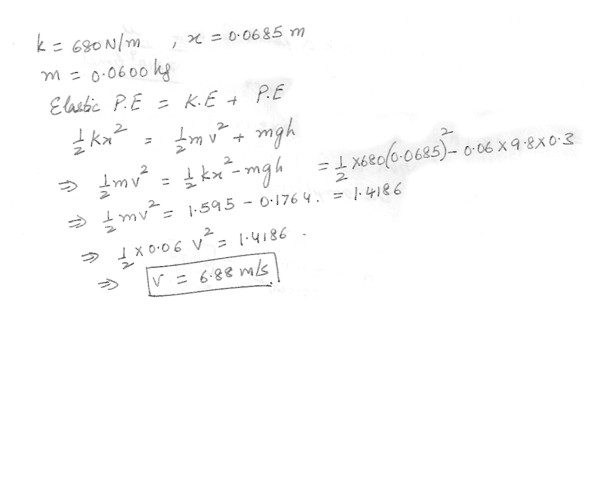 k = 680 N/m , x = 0.0685 m
m = 0.0600 kg
Elastic P.E = K.E + P.E
½ kx² = ½ mv² + mgh
⇒ ½ mv² = ½ kx² - mgh = ½ × 680 (0.0685)² - 0.06 × 9.8 × 0.3
⇒ ½ mv² = 1.595 - 0.1764. = 1.4186
⇒ ½ × 0.06 v² = 1.4186.
⇒ v = 6.88 m/s